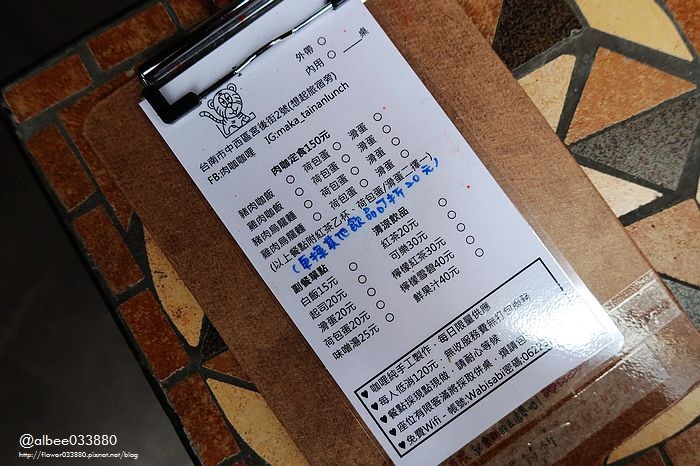 外帶 ○
內用 ○ ___桌
台南市中西區宮後街2號(想起旅宿旁)
FB:肉咖咖哩 IG:maka_tainanlunch
肉咖定食150元
豬肉咖飯 ○ 荷包蛋 ○ 滑蛋 ○
雞肉咖飯 ○ 荷包蛋 ○ 滑蛋 ○
豬肉烏龍麵 ○ 荷包蛋 ○ 滑蛋 ○
雞肉烏龍麵 ○ 荷包蛋 ○ 滑蛋 ○
(以上餐點附紅茶乙杯、荷包蛋/滑蛋二擇一)
(更換其他飲品可折20元)
副餐單點
白飯15元 ○
起司20元 ○
滑蛋20元 ○
荷包蛋20元 ○
味噌湯25元 ○
清涼飲品
紅茶20元 ○
可樂30元 ○
檸檬紅茶30元 ○
檸檬雪碧40元 ○
鮮果汁40元 ○
♥ 咖哩純手工製作，每日限量供應
♥ 每人低消120元，無收服務費無打包服務
♥ 餐點採現點現做，請耐心等候
♥ 座位有限客滿將採取併桌，煩請包
♥ 免費Wifi－帳號:Wabisabi密碼:0622
@albee033880
http://flower033880.pixnet.net/blog